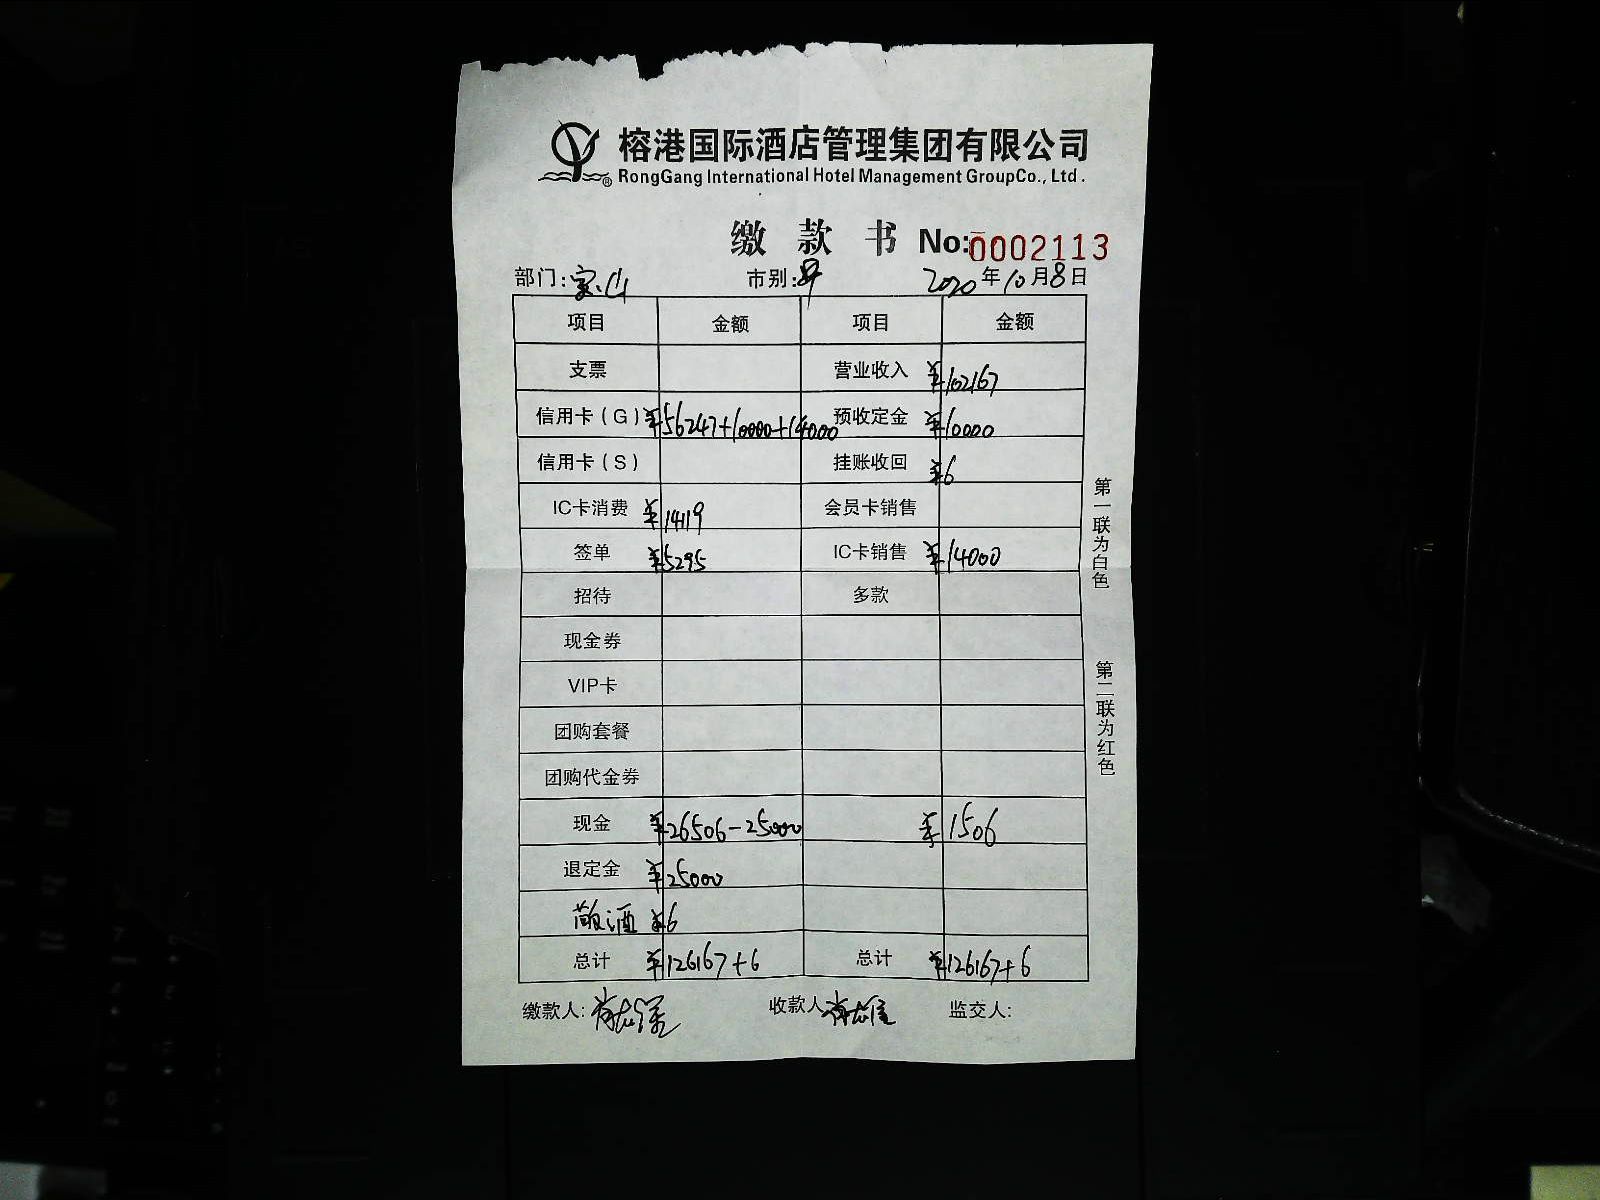 榕港国际酒店管理集团有限公司
RongGang International Hotel Management GroupCo., Ltd.
缴款书 No:0002113
部门:宝山 市别:早 2020年10月8日
项目 金额 项目 金额
支票 营业收入 ¥102167
信用卡(G) ¥56247+10000+14000 预收定金 ¥10000
信用卡(S) 挂账收回 ¥6
IC卡消费 ¥14119 会员卡销售
签单 ¥5295 IC卡销售 ¥14000
招待 多款
现金券
VIP卡
团购套餐
团购代金券
现金 ¥26506-25000 ¥1506
退定金 ¥25000
酒 ¥6
总计 ¥126167+6 总计 ¥126167+6
缴款人: 收款人 监交人:
第一联为白色
第二联为红色